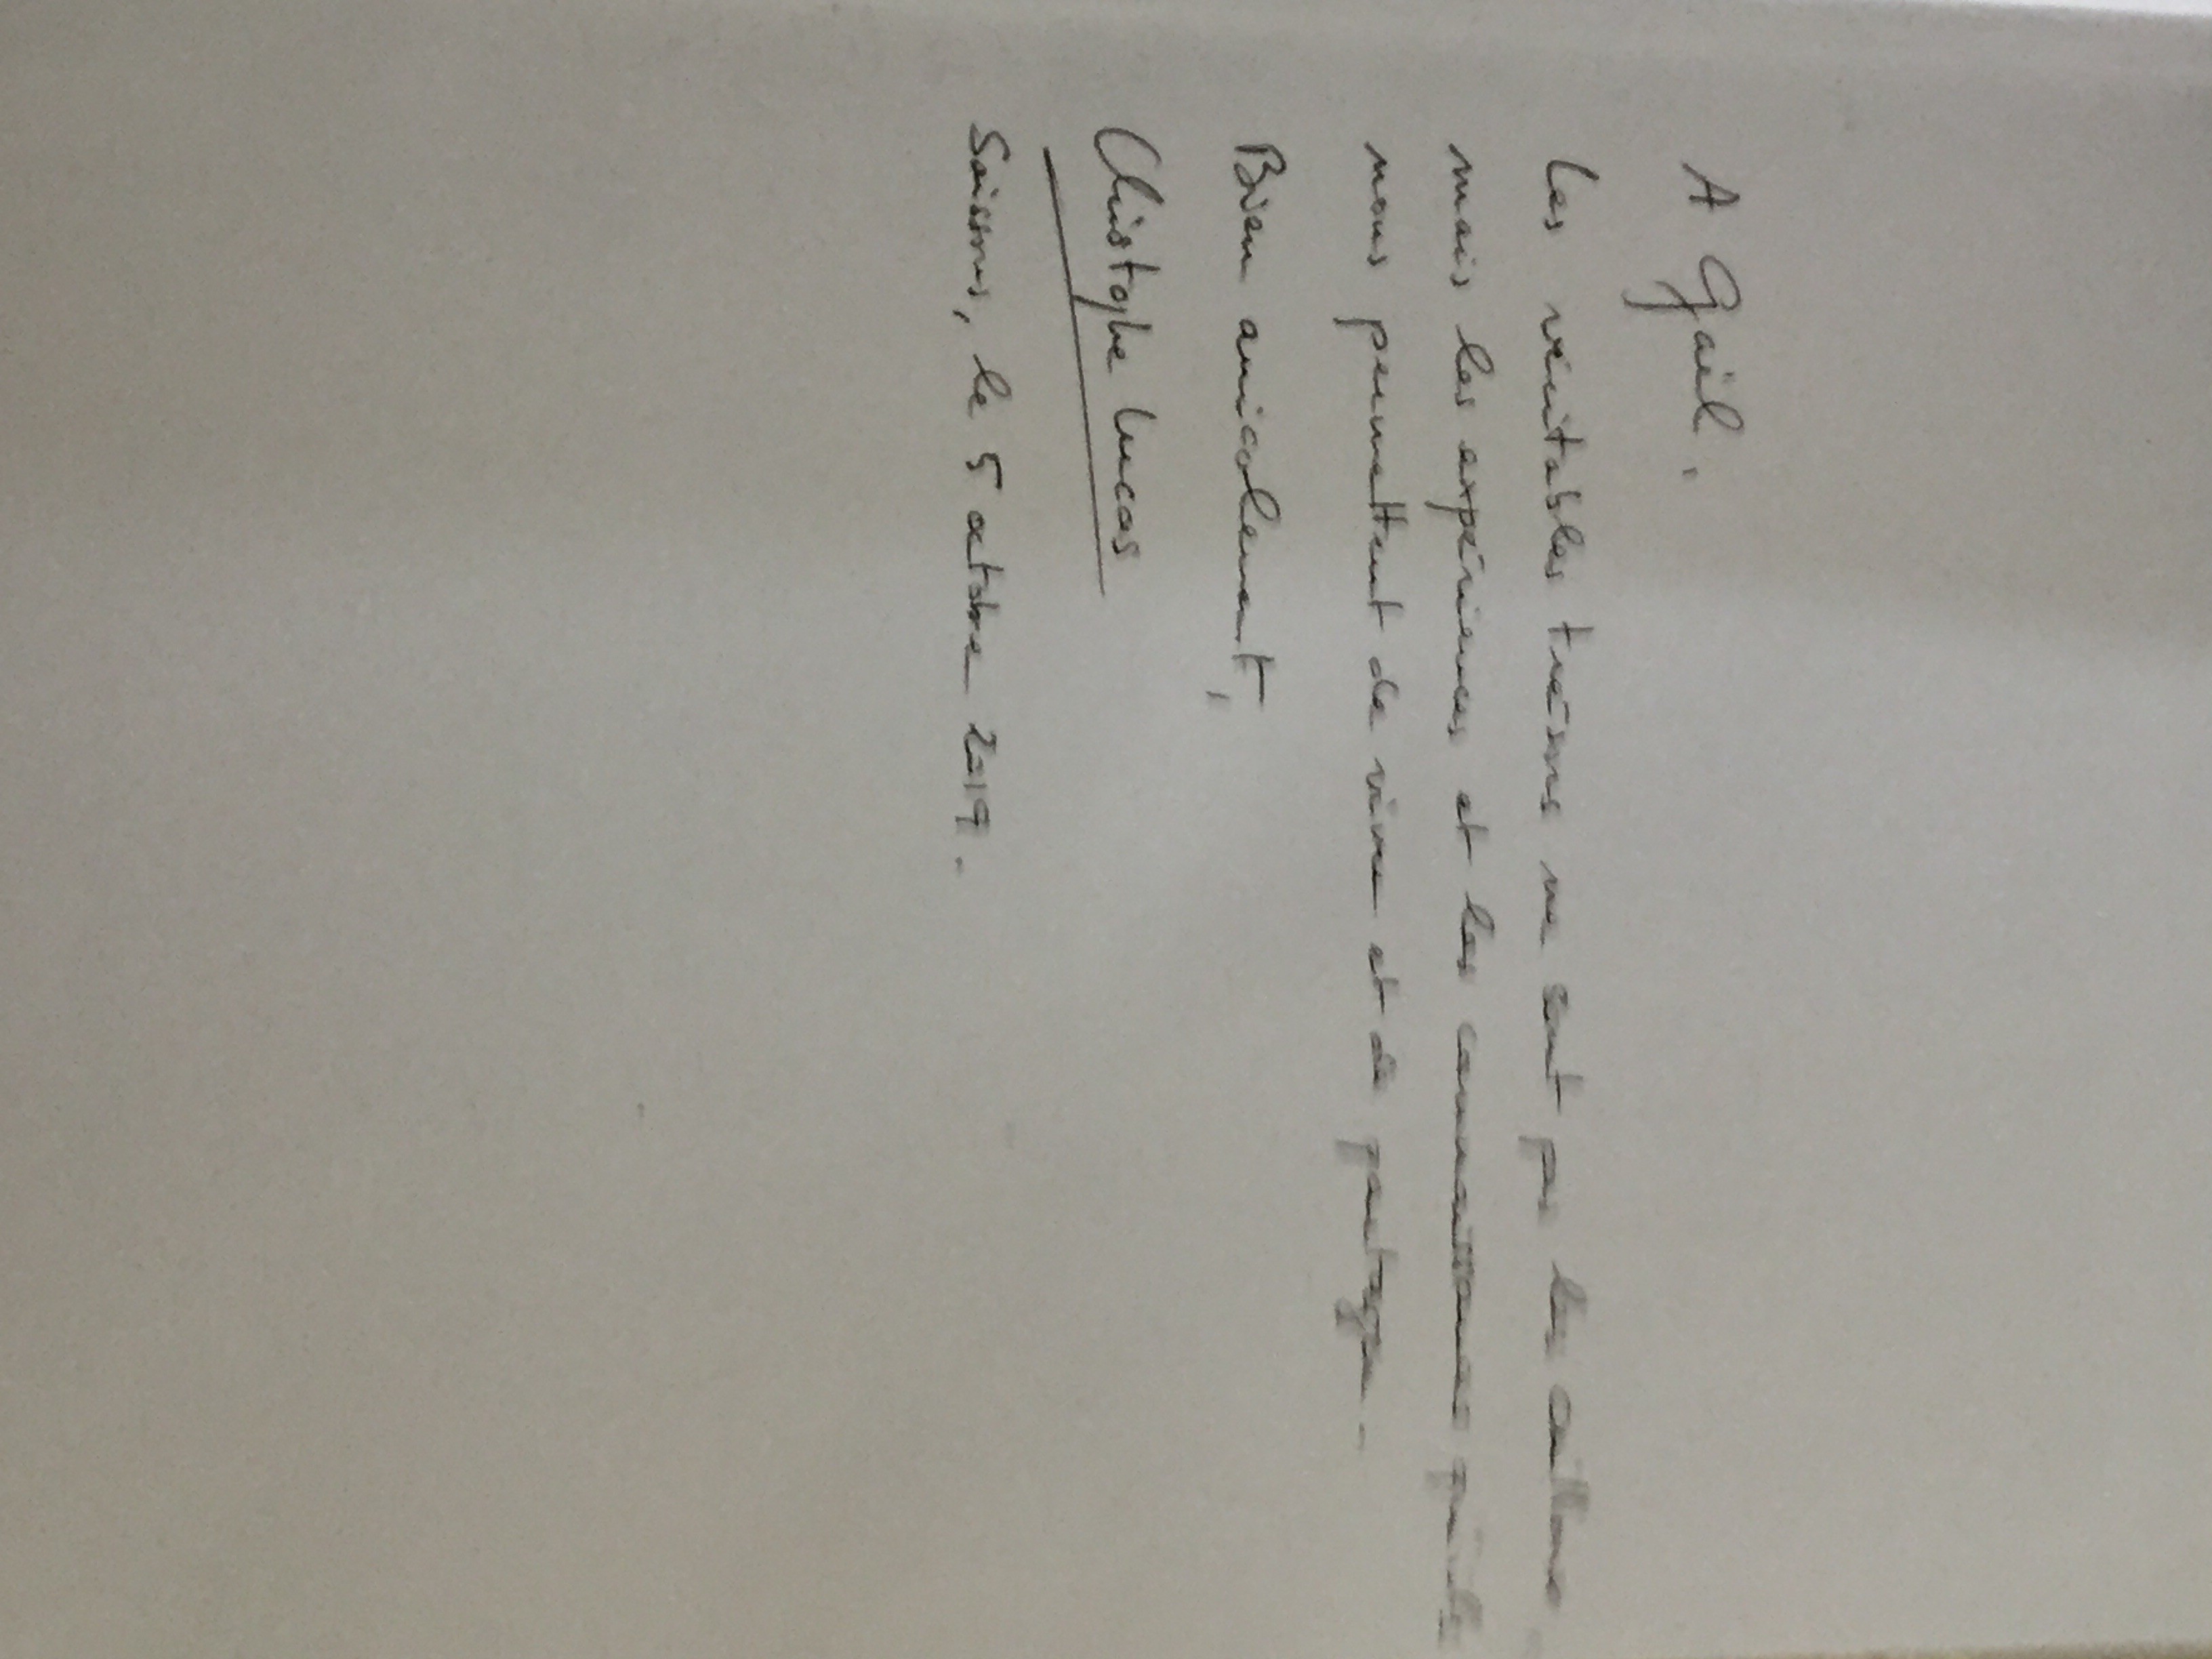 A Gaël,
Les véritables trésors ne sont pas les cailloux,
mais les expériences et les connaissances qu'ils
nous permettent de vivre et de partager.
Bien amicalement,
Christophe Lucas
Soissons, le 5 octobre 2019.